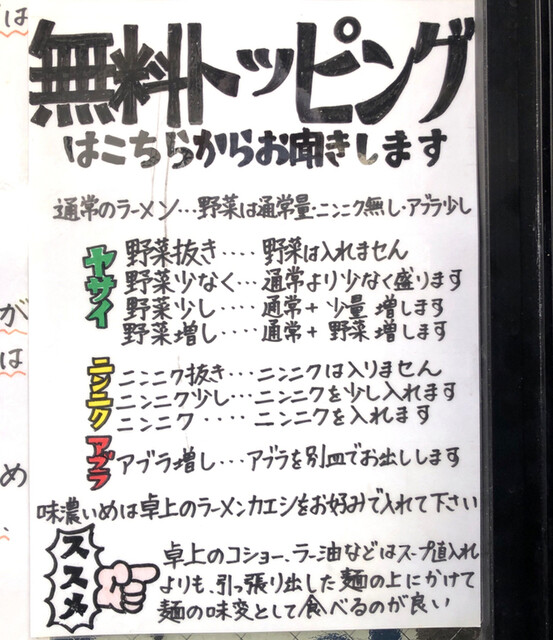 は
無料トッピング
はこちらからお聞きします
通常のラーメン…野菜は通常量・ニンニク無し・アブラ少し
ヤサイ
野菜抜き‥‥野菜は入れません
野菜少なく…通常より少なく盛ります
野菜少し‥‥通常+少量増します
野菜増し‥‥通常+野菜増します
ニンニク
ニンニク抜き‥‥ニンニクは入りません
ニンニク少し‥‥ニンニクを少し入れます
ニンニク‥‥ニンニクを入れます
アブラ
アブラ増し…アブラを別皿でお出しします
味濃いめは卓上のラーメンカエシをお好みで入れて下さい
ススメ
卓上のコショー、ラー油などはスープ直入れ
よりも、引っ張り出した麺の上にかけて
麺の味変として食べるのが良い
が
は
め